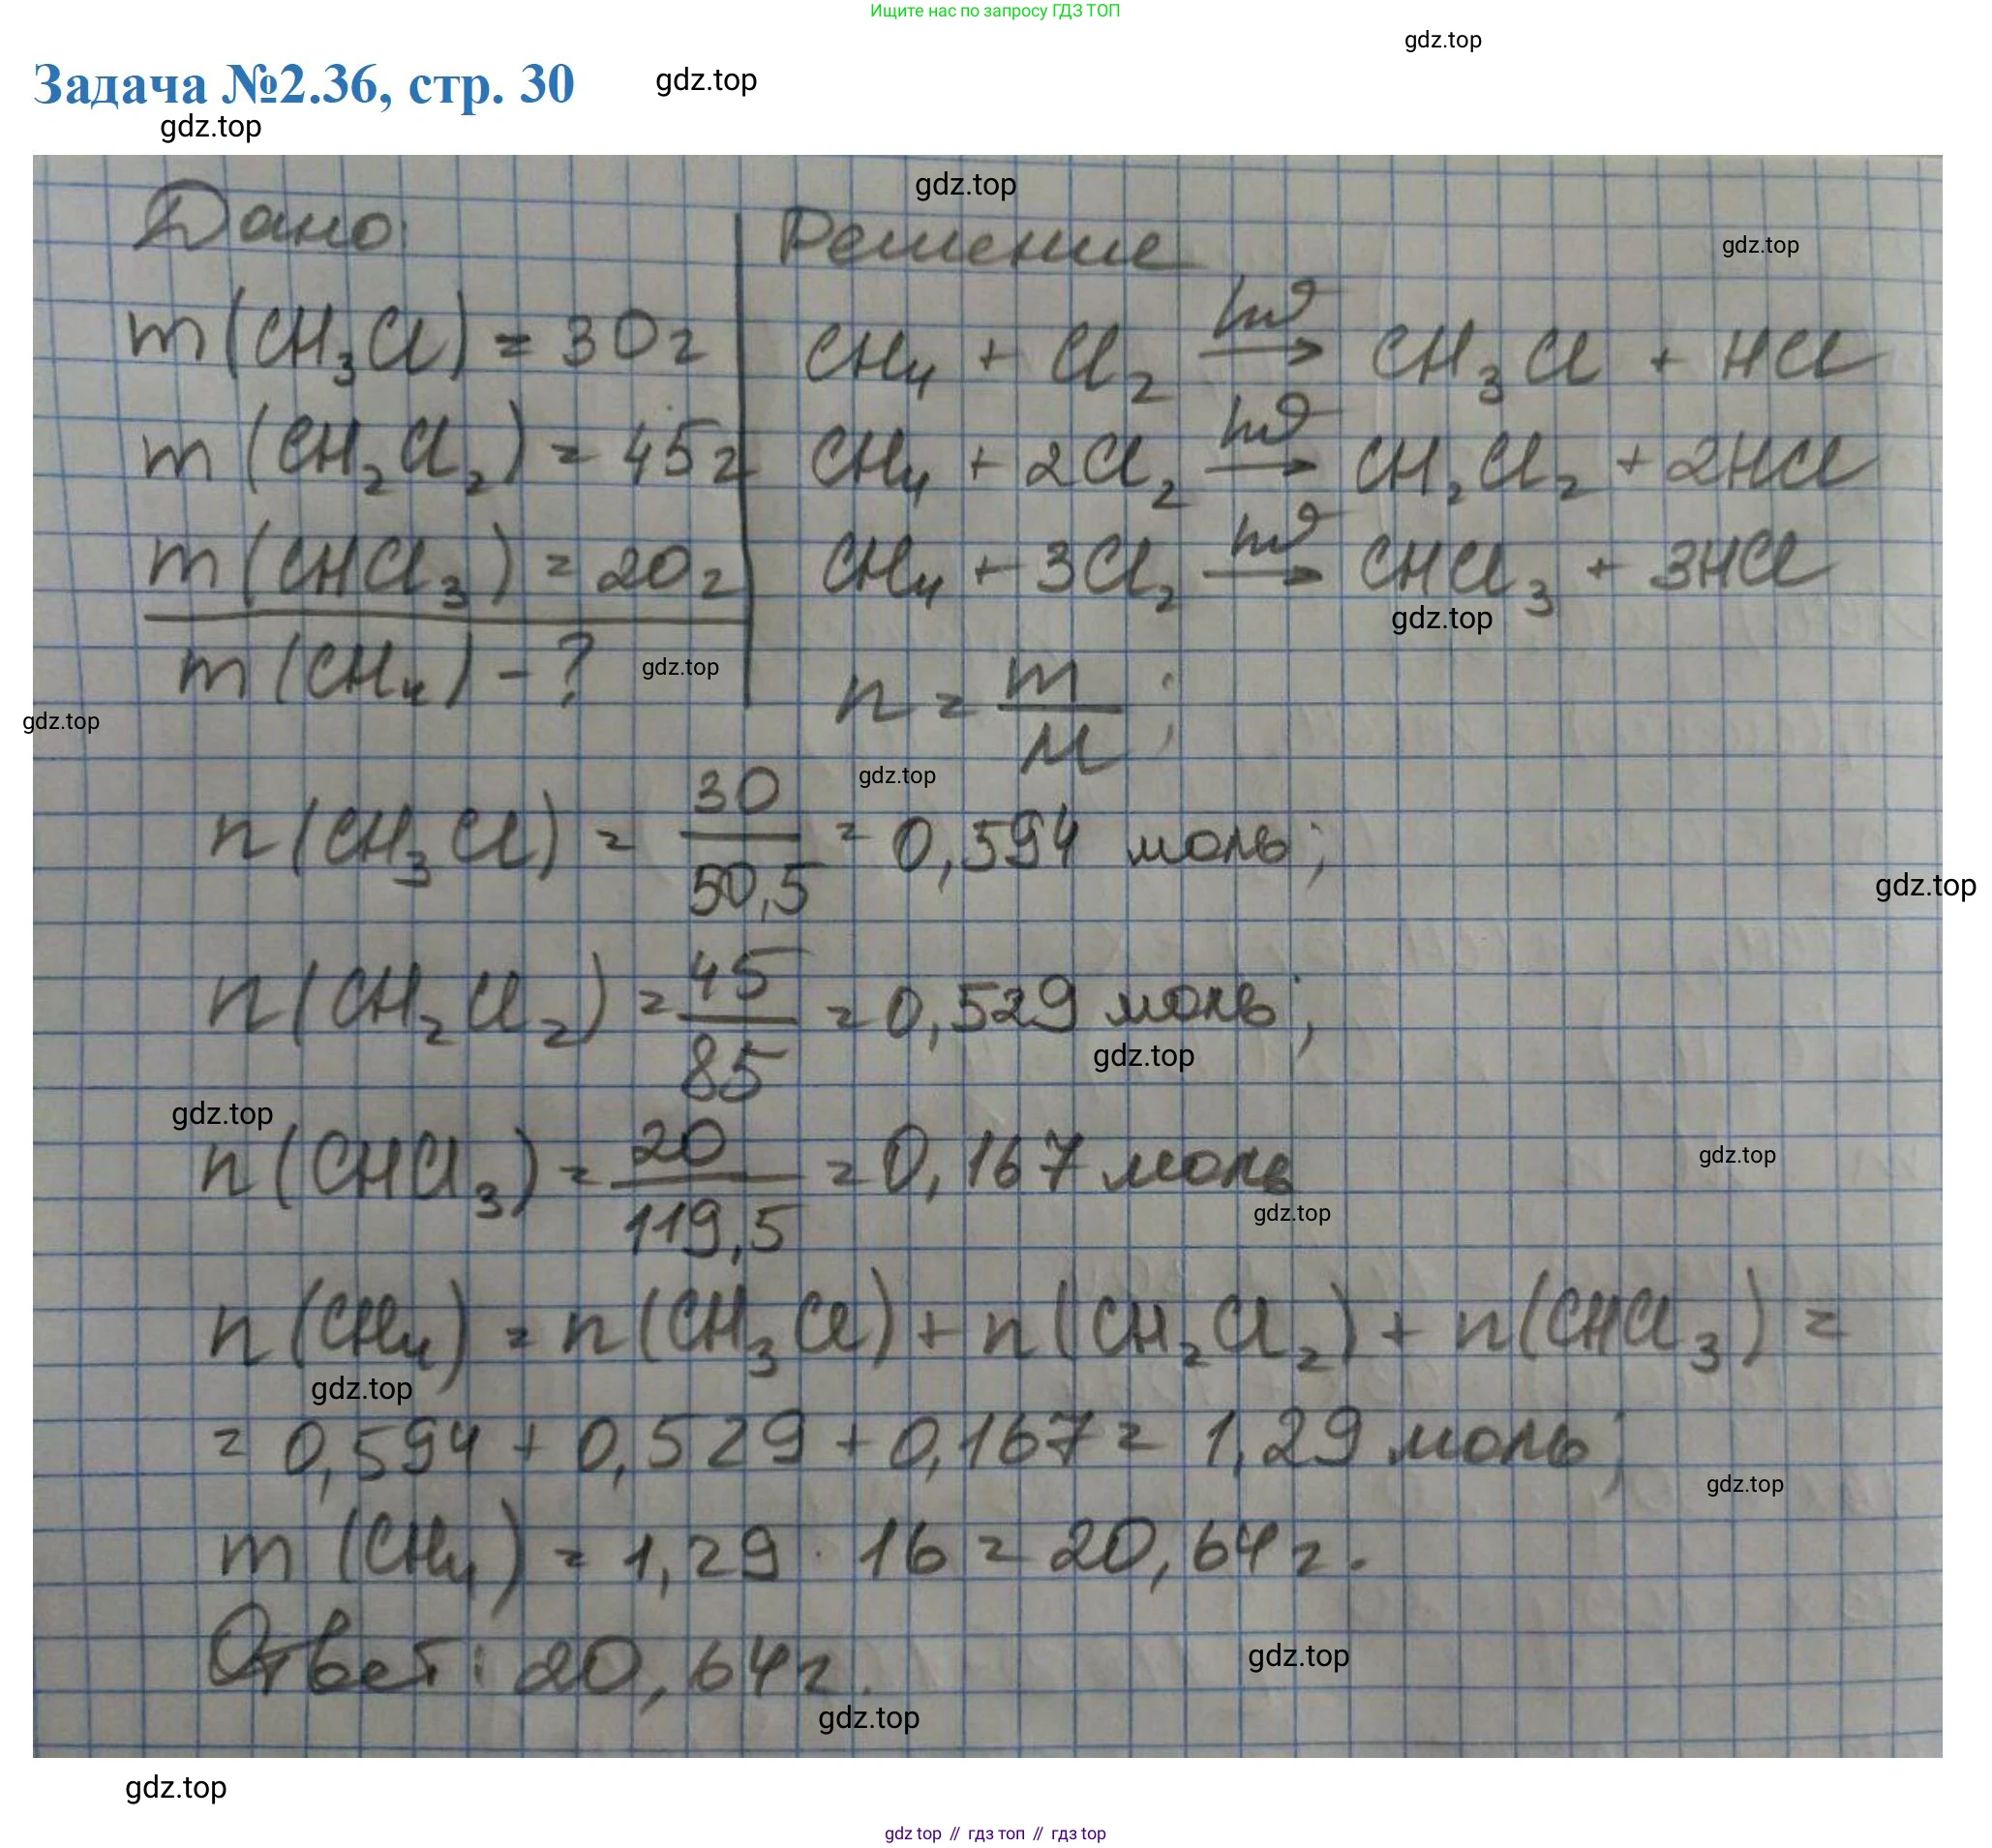 Ищите нас по запросу ГДЗ ТОП
gdz.top
Задача №2.36, стр. 30
gdz.top
gdz.top
gdz.top
Дано:
Решение
gdz.top
m(CH₃Cl) = 30г
CH₄ + Cl₂ —hν→ CH₃Cl + HCl
m(CH₂Cl₂) = 45г
CH₄ + 2Cl₂ —hν→ CH₂Cl₂ + 2HCl
m(CHCl₃) = 20г
CH₄ + 3Cl₂ —hν→ CHCl₃ + 3HCl
gdz.top
m(CH₄) - ?
gdz.top
n = m/M ;
gdz.top
gdz.top
n(CH₃Cl) = 30/50,5 = 0,594 моль;
gdz.top
n(CH₂Cl₂) = 45/85 = 0,529 моль;
gdz.top
gdz.top
n(CHCl₃) = 20/119,5 = 0,167 моль
gdz.top
gdz.top
n(CH₄) = n(CH₃Cl) + n(CH₂Cl₂) + n(CHCl₃) =
gdz.top
= 0,594 + 0,529 + 0,167 = 1,29 моль;
gdz.top
m(CH₄) = 1,29 · 16 = 20,64 г.
Ответ: 20,64 г.
gdz.top
gdz.top
gdz.top
gdz top // гдз топ // gdz top